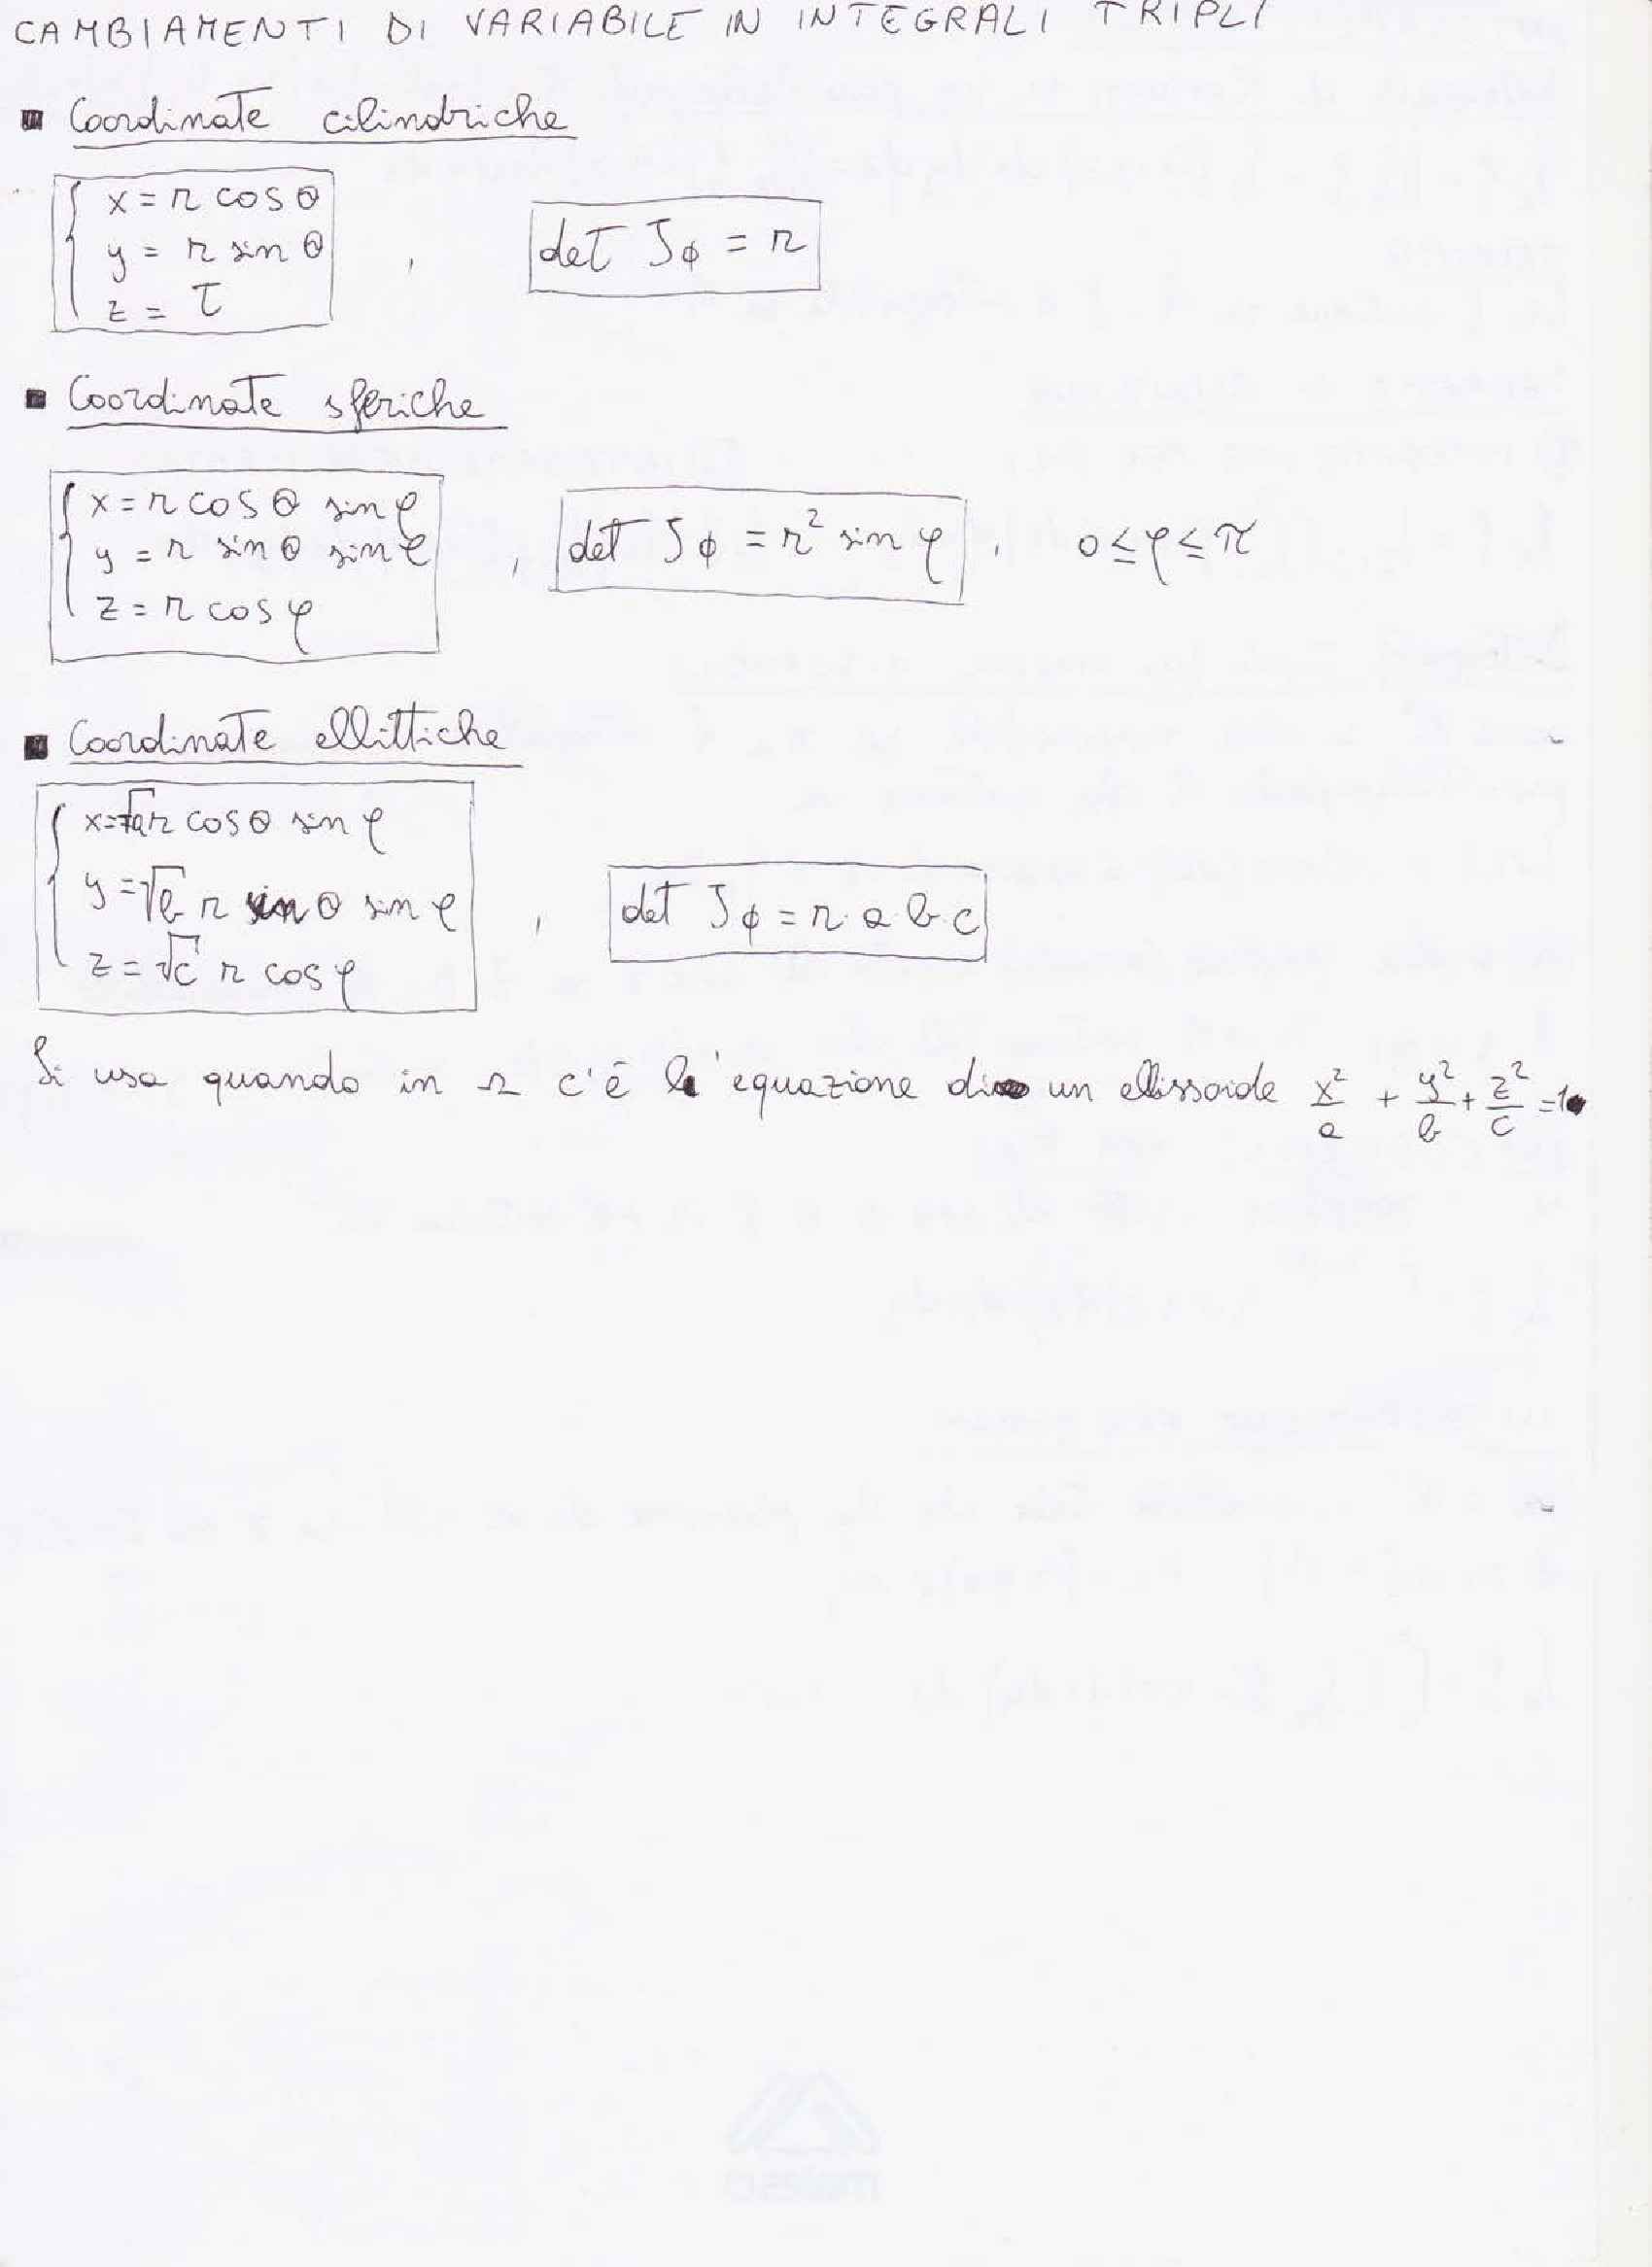 CAMBIAMENTI DI VARIABILE IN INTEGRALI TRIPLI
▪ Coordinate cilindriche
{ x = r cos θ
y = r sin θ , det J_ϕ = r
z = τ
▪ Coordinate sferiche
{ x = r cos θ sin φ
y = r sin θ sin φ , det J_ϕ = r² sin φ , 0 ≤ φ ≤ π
z = r cos φ
▪ Coordinate ellittiche
{ x = √a r cos θ sin φ
y = √b r sin θ sin φ , det J_ϕ = r · a · b · c
z = √c r cos φ
Si usa quando in Ω c'è l'equazione di un ellissoide x²/a + y²/b + z²/c = 1